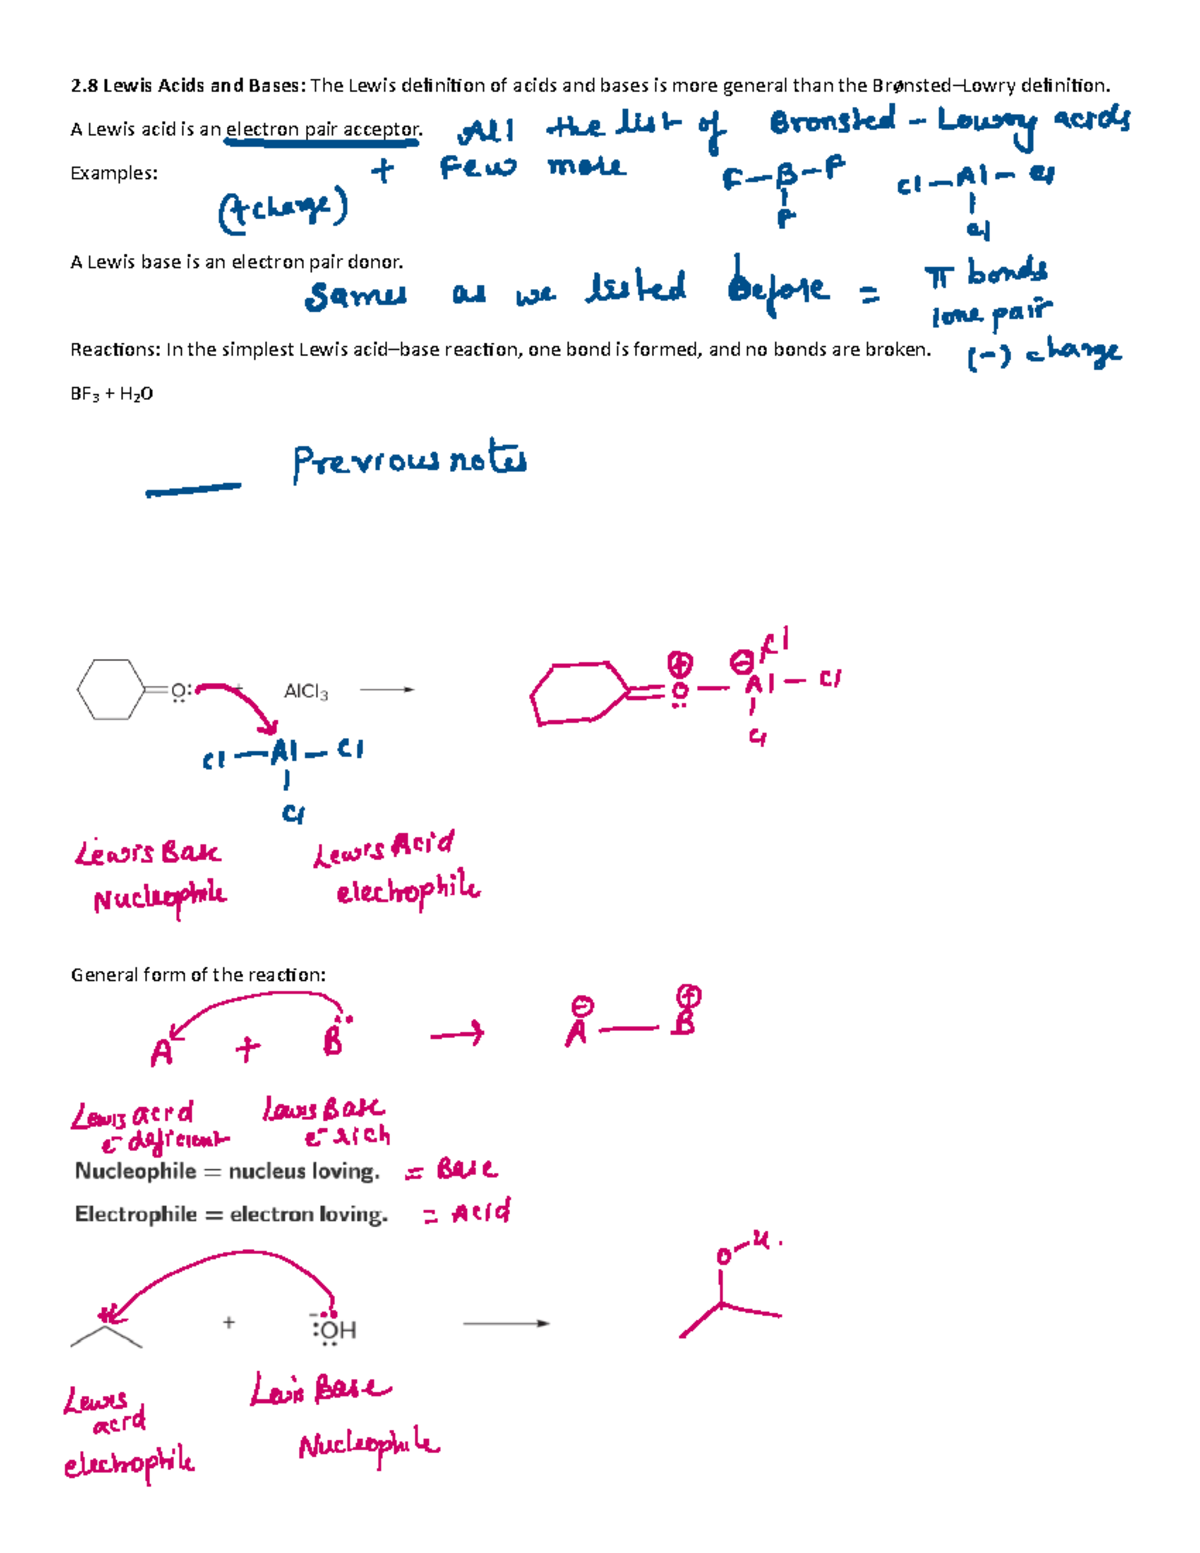 2.8 Lewis Acids and Bases: The Lewis definition of acids and bases is more general than the Brønsted–Lowry definition.
A Lewis acid is an electron pair acceptor. All the list of Bronsted - Lowry acids
Examples: + Few more
F—B—F
F
Cl—Al—Cl
Cl
(+ charge)
A Lewis base is an electron pair donor.
Same as we listed before = π bonds
lone pair
(-) charge
Reactions: In the simplest Lewis acid–base reaction, one bond is formed, and no bonds are broken.
BF₃ + H₂O
Previous notes
O: + AlCl₃
Cl—Al—Cl
Cl
⊕ ⊖ Cl
=O—Al—Cl
Cl
Lewis Base Lewis Acid
Nucleophile electrophile
General form of the reaction:
⊖ ⊕
A + B → A—B
Lewis acid Lewis Base
e⁻ deficient e⁻ rich
Nucleophile = nucleus loving. = Base
Electrophile = electron loving. = Acid
O—H
+ + ⁻:OH
Lewis acid Lewis Base
electrophile Nucleophile